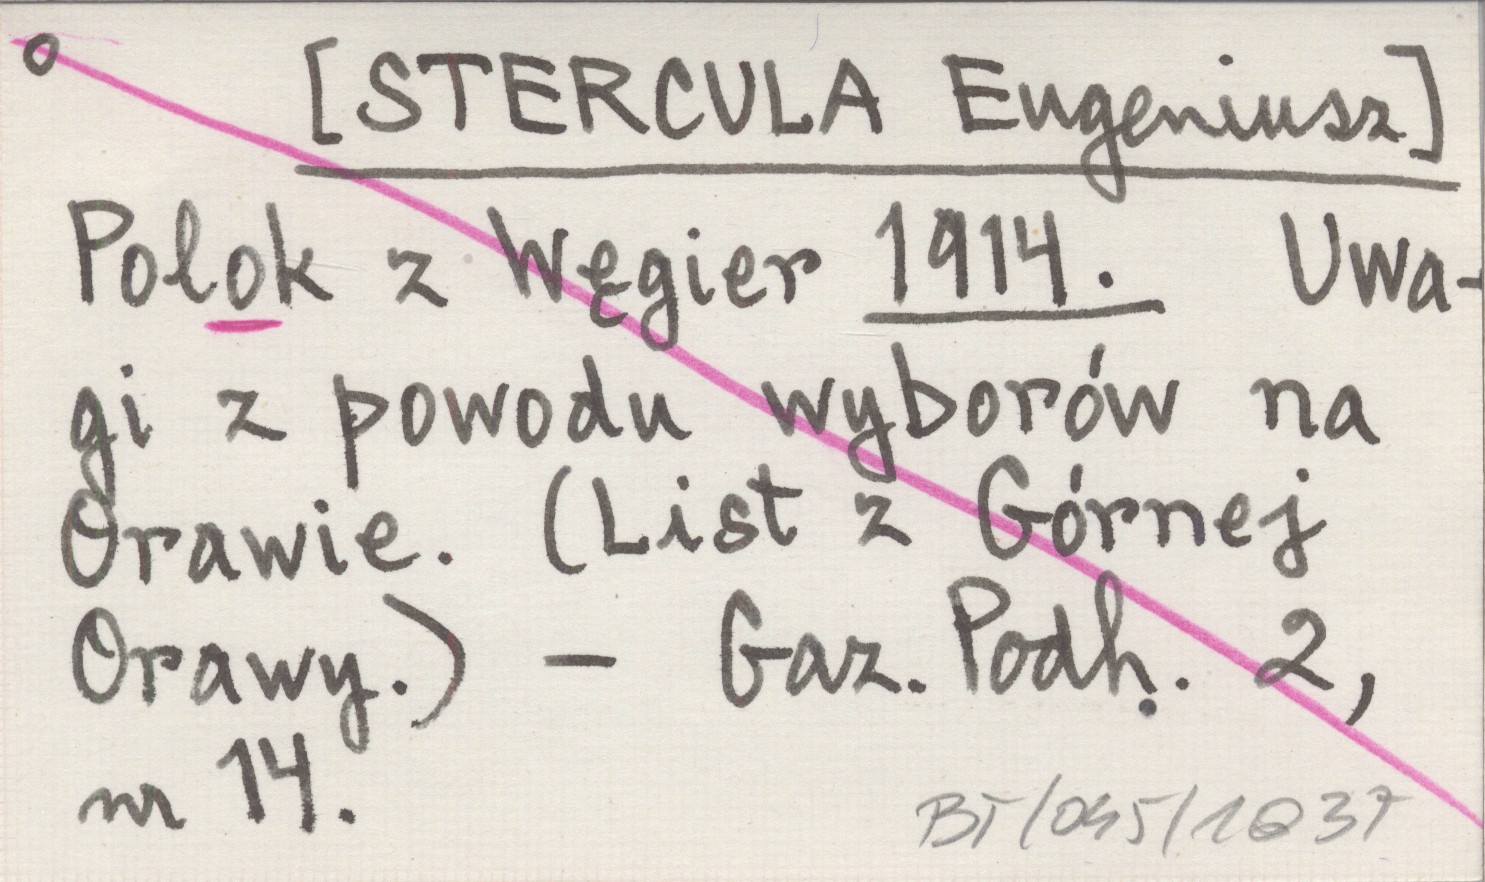 o [STERCULA Eugeniusz]
Polok z Węgier 1914. Uwa-
gi z powodu wyborów na
Orawie. (List z Górnej
Orawy.) – Gaz. Podh. 2,
nr 14.
BT/045/1037